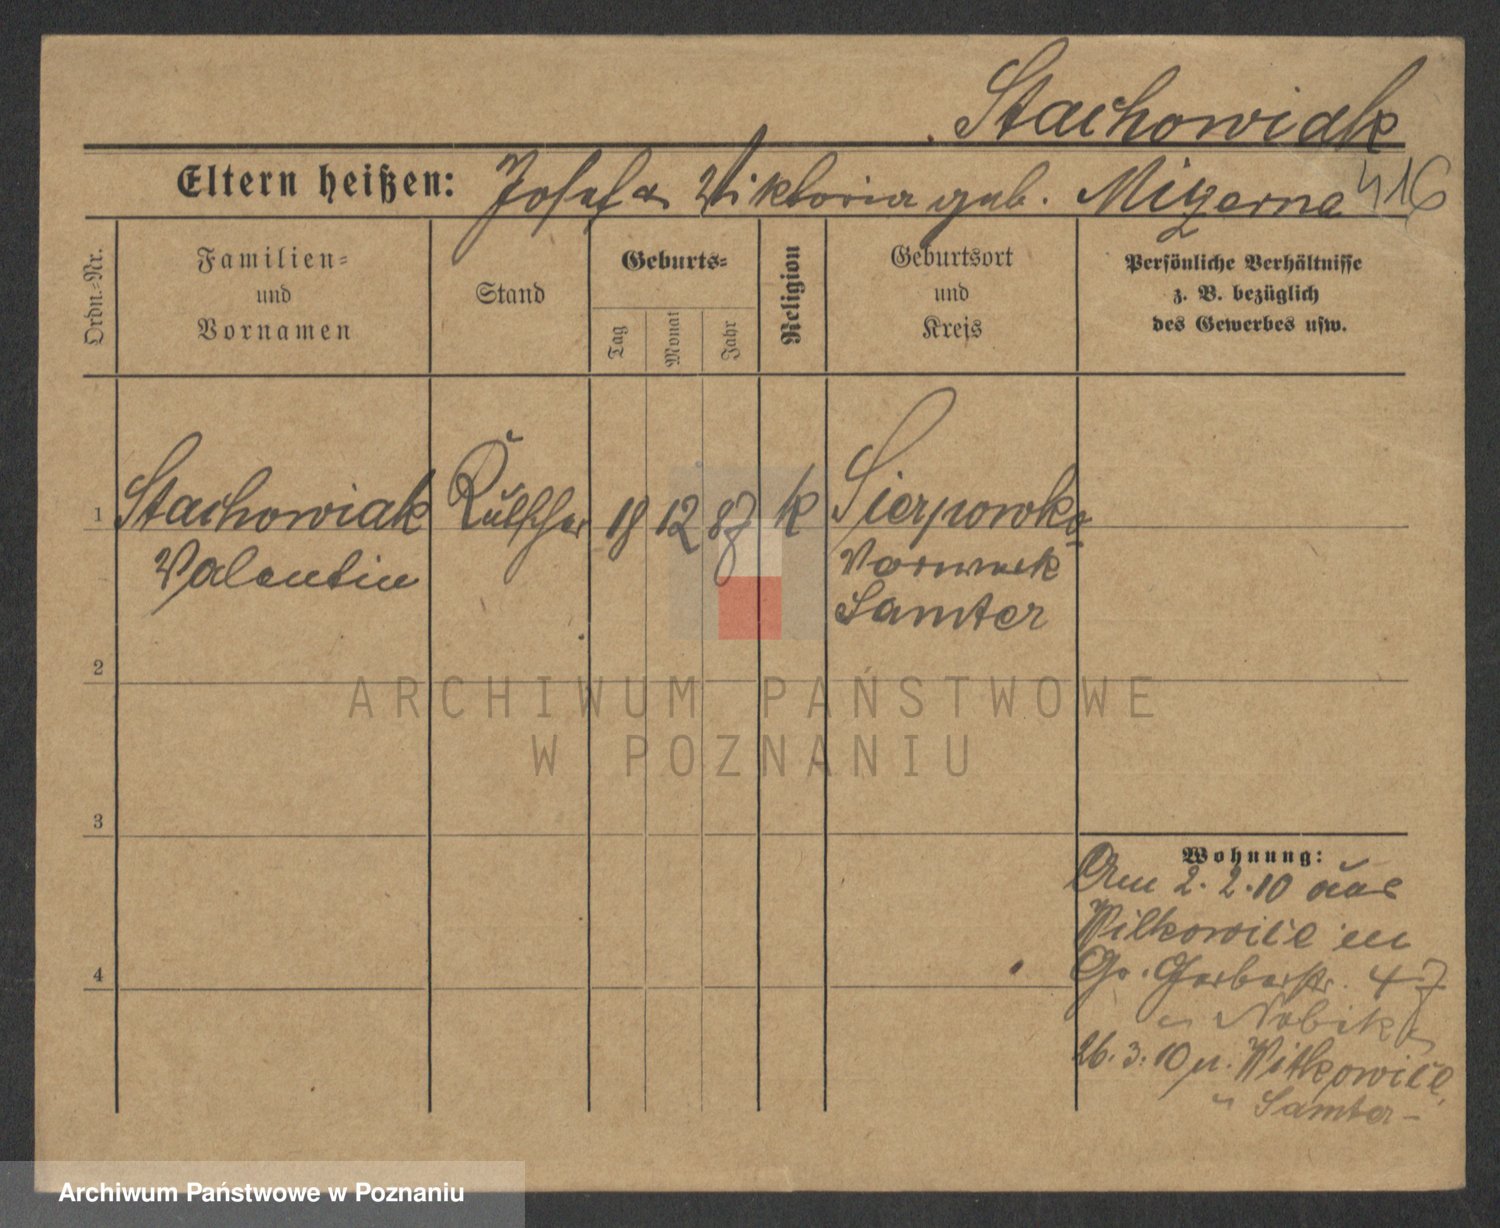 Stachowiak
Eltern heißen: Josef u. Viktoria geb. Mizerna 416
Ordn.-Nr.
Familien-
und
Vornamen
Stand
Geburts-
Tag
Monat
Jahr
Religion
Geburtsort
und
Kreis
Persönliche Verhältnisse
z. B. bezüglich
des Gewerbes usw.
1 Stachowiak Kutscher 18 12 87 k Sierpowko
Valentin Vorwerk
Samter
2
3
4
Wohnung:
Am 2. 2. 10 aus
in
Gr. Gerberstr. 47
Nobik
26. 3. 10 n.
Samter
ARCHIWUM PAŃSTWOWE
W POZNANIU
Archiwum Państwowe w Poznaniu